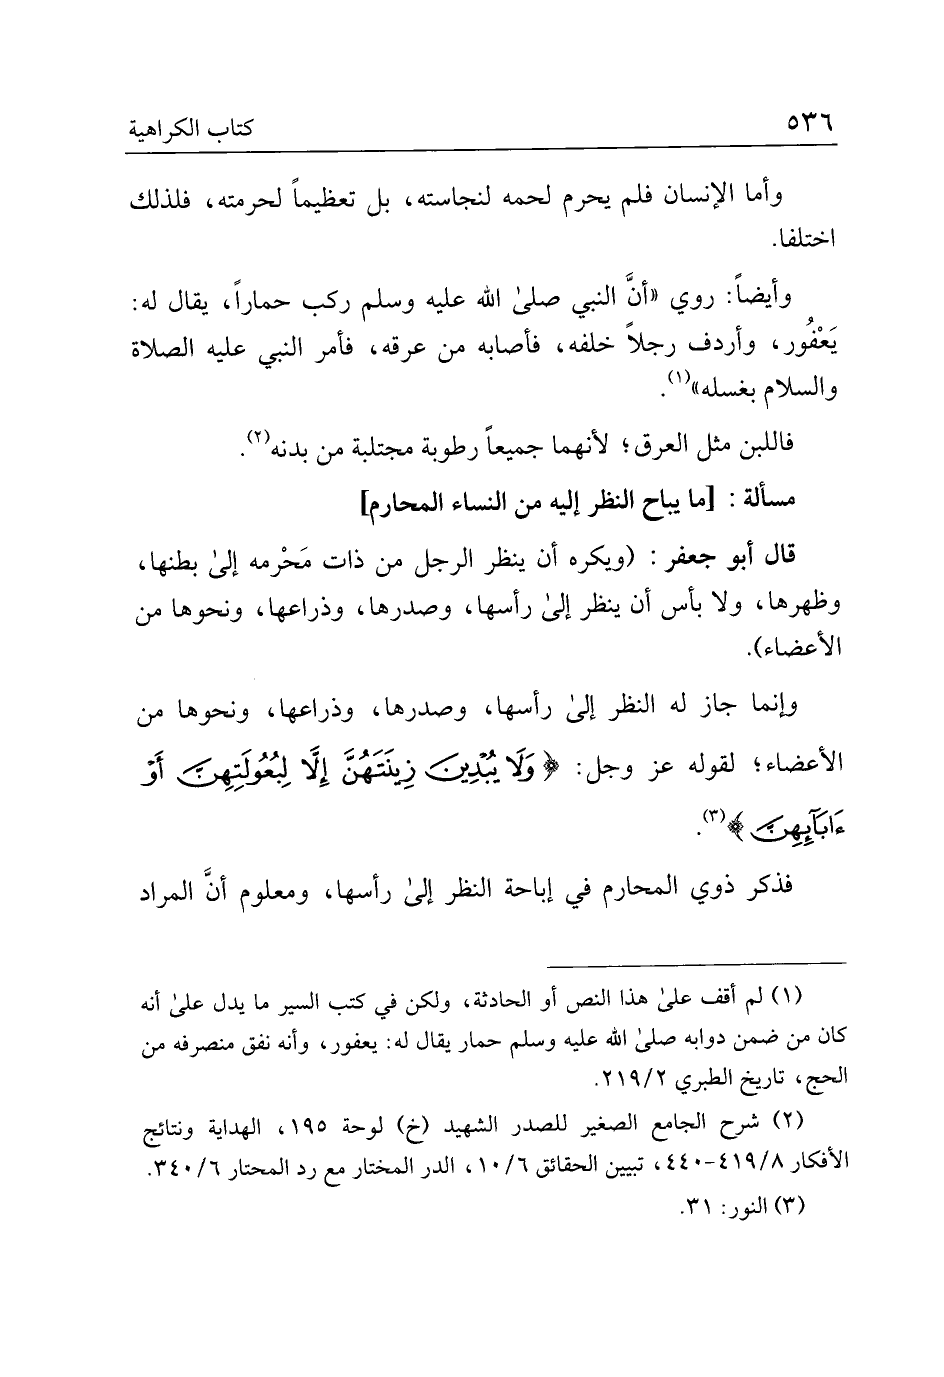 ٥٣٦ كتاب الكراهية
وأما الإنسان فلم يحرم لحمه لنجاسته، بل تعظيماً لحرمته، فلذلك
اختلفا.
وأيضاً: روي «أنَّ النبي صلىٰ الله عليه وسلم ركب حماراً، يقال له:
يَعْفُور، وأردف رجلاً خلفه، فأصابه من عرقه، فأمر النبي عليه الصلاة
والسلام بغسله»(١).
فاللبن مثل العرق؛ لأنهما جميعاً رطوبة مجتلبة من بدنه(٢).
مسألة : [ما يباح النظر إليه من النساء المحارم]
قال أبو جعفر : (ويكره أن ينظر الرجل من ذات مَحْرمه إلىٰ بطنها،
وظهرها، ولا بأس أن ينظر إلىٰ رأسها، وصدرها، وذراعها، ونحوها من
الأعضاء).
وإنما جاز له النظر إلىٰ رأسها، وصدرها، وذراعها، ونحوها من
الأعضاء؛ لقوله عز وجل: ﴿ وَلَا يُبْدِينَ زِينَتَهُنَّ إِلَّا لِبُعُولَتِهِنَّ أَوْ
ءَابَآئِهِنَّ ﴾(٣).
فذكر ذوي المحارم في إباحة النظر إلىٰ رأسها، ومعلوم أنَّ المراد
(١) لم أقف علىٰ هذا النص أو الحادثة، ولكن في كتب السير ما يدل علىٰ أنه
كان من ضمن دوابه صلىٰ الله عليه وسلم حمار يقال له: يعفور، وأنه نفق منصرفه من
الحج، تاريخ الطبري ٢١٩/٢.
(٢) شرح الجامع الصغير للصدر الشهيد (خ) لوحة ١٩٥، الهداية ونتائج
الأفكار ٤١٩/٨-٤٤٠، تبيين الحقائق ١٠/٦، الدر المختار مع رد المحتار ٣٤٠/٦.
(٣) النور: ٣١.